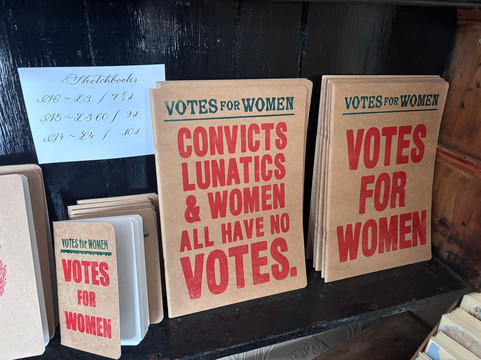 Sketchbooks
A6 ~ £3 / 7½d
A5 ~ £3.60 / 9d
A4 ~ £4 / 10d
VOTES FOR WOMEN
CONVICTS
LUNATICS
& WOMEN
ALL HAVE NO
VOTES.
VOTES FOR WOMEN
VOTES
FOR
WOMEN
VOTES for WOMEN
VOTES
FOR
WOMEN